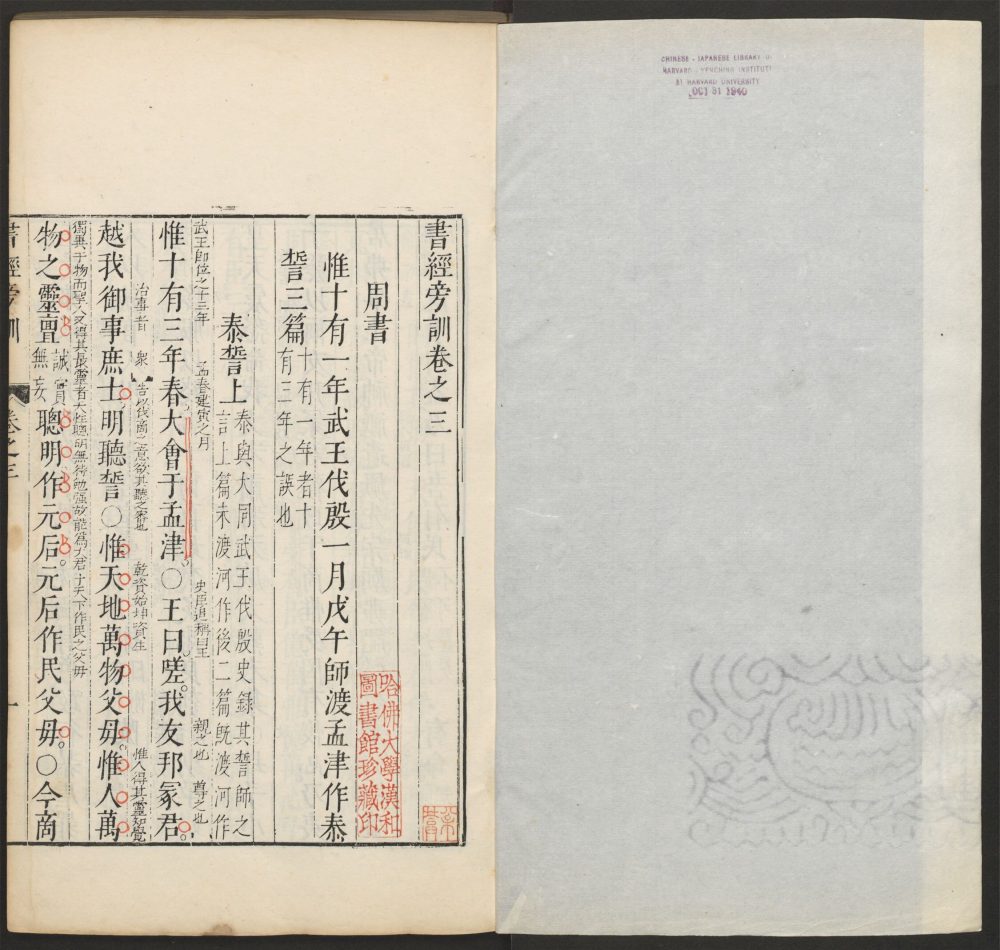 CHINESE - JAPANESE LIBRARY O
HARVARD - YENCHING INSTITUT
AT HARVARD UNIVERSITY
OCT 31 1940
書經旁訓卷之三
周書
哈佛大學漢和
圖書館珍藏印
惟十有一年武王伐殷一月戊午師渡孟津作泰
誓三篇
十有一年者十
有三年之誤也
泰誓上
泰與大同武王伐殷史錄其誓師之
言上篇未渡河作後二篇既渡河作
武王即位之十三年 孟春建寅之月 史臣追稱曰王 親之也 尊之也
惟十有三年春大會于孟津○王曰嗟我友邦冢君
治事者 衆 告以伐商之意欲其聽之審也 乾資始坤資生 惟人得其靈知覺
越我御事庶士明聽誓○惟天地萬物父母惟人萬
獨異于物而聖人又得其最靈者天性聰明無待勉强故能爲大君于天下作民之父母
物之靈亶
誠實
無妄
聰明作元后元后作民父母○今商
書經旁訓
卷之三
一